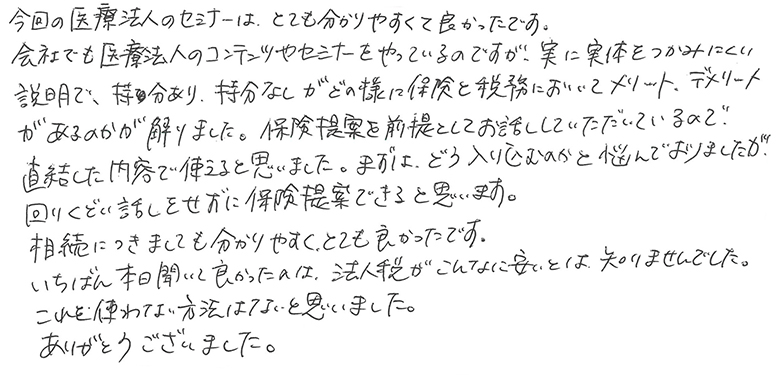 今回の医療法人のセミナーは、とても分かりやすくて良かったです。
会社でも医療法人のコンテンツやセミナーをやっているのですが、実に実体をつかみにくい
説明で、持分あり、持分なしがどの様に保険と税務においてメリット、デメリット
があるのかが解りました。保険提案を前提としてお話ししていただいているので、
直結した内容で使えると思いました。まずは、どう入り込むのかと悩んでおりましたが、
回りくどい話しをせずに保険提案できると思います。
相続につきましても分かりやすく、とても良かったです。
いちばん本日聞いて良かったのは、法人税がこんなに安いとは、知りませんでした。
これを使わない方法はないと思いました。
ありがとうございました。